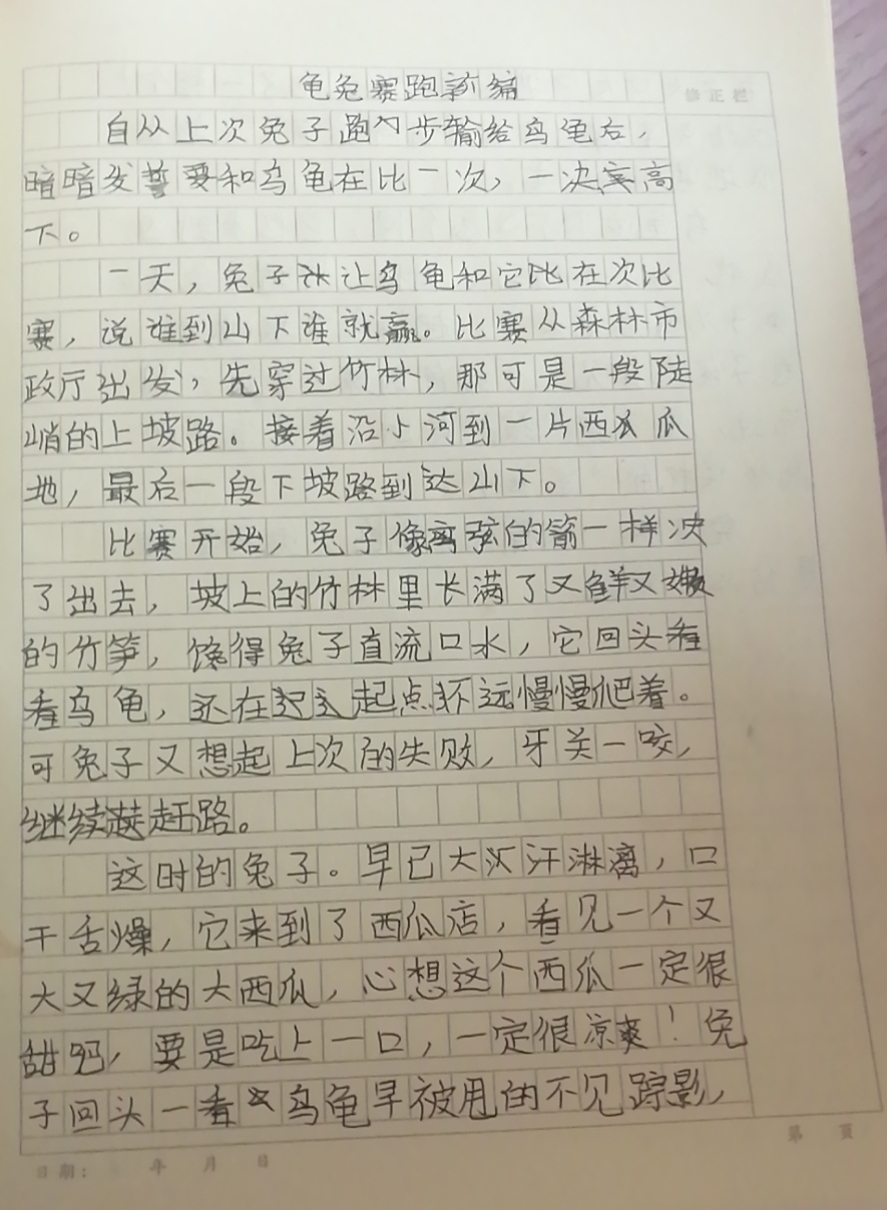 龟兔赛跑新编
修正栏
自从上次兔子跑步输给乌龟后，
暗暗发誓要和乌龟在比一次，一决定高
下。
一天，兔子让乌龟和它比在次比
赛，说谁到山下谁就赢。比赛从森林市
政厅出发，先穿过竹林，那可是一段陡
峭的上坡路。接着沿小河到一片西瓜
地，最后一段下坡路到达山下。
比赛开始，兔子像离弦的箭一样冲
了出去，坡上的竹林里长满了又鲜又嫩
的竹笋，馋得兔子直流口水，它回头看
看乌龟，还在起点不远慢慢爬着。
可兔子又想起上次的失败，牙关一咬，
继续赶路。
这时的兔子。早已大汗淋漓，口
干舌燥，它来到了西瓜店，看见一个又
大又绿的大西瓜，心想这个西瓜一定很
甜吧，要是吃上一口，一定很凉爽！兔
子回头一看乌龟早被甩的不见踪影，
日期： 年 月 日
第 页